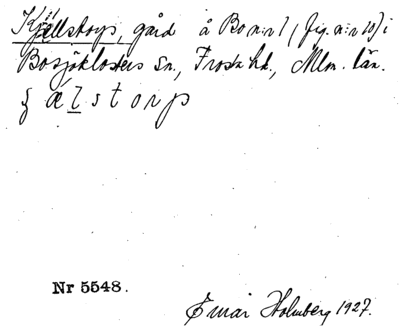 Kjellstorp, gård å Bo n:r 1 (fig. a: n 10) i
Bosjöklosters sn., Frosta hd., Mlm. län.
ælstorp
Nr 5548.
Einar Holmberg 1927.